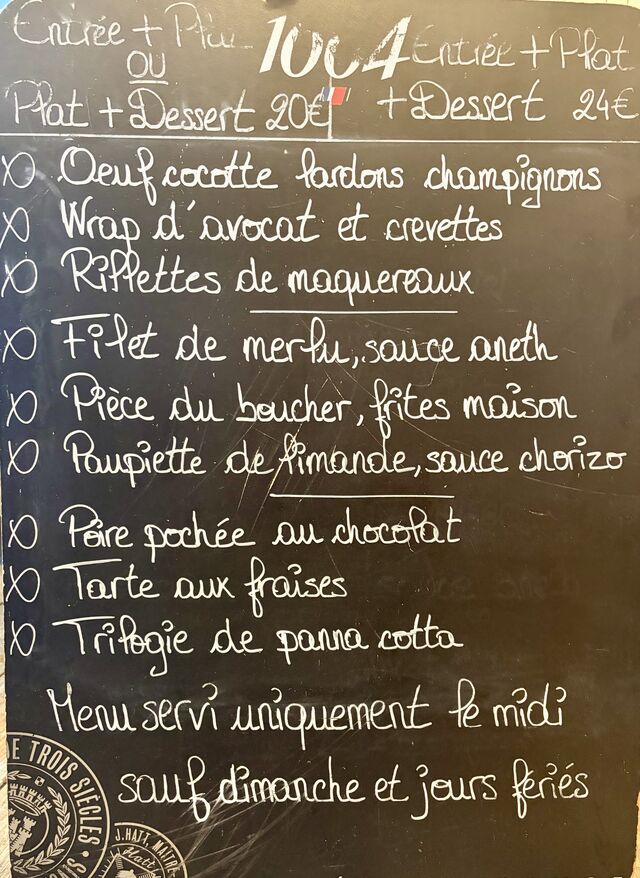 Entrée + Plat 1664 Entrée + Plat
OU
Plat + Dessert 20€ + Dessert 24€
Oeuf cocotte lardons champignons
Wrap d'avocat et crevettes
Rillettes de maquereaux
Filet de merlu, sauce aneth
Pièce du boucher, frites maison
Paupiette de limande, sauce chorizo
Poire pochée au chocolat
Tarte aux fraises
Trilogie de panna cotta
Menu servi uniquement le midi
sauf dimanche et jours fériés
DE TROIS SIECLES
J. HATT, MAITRE
Hatt